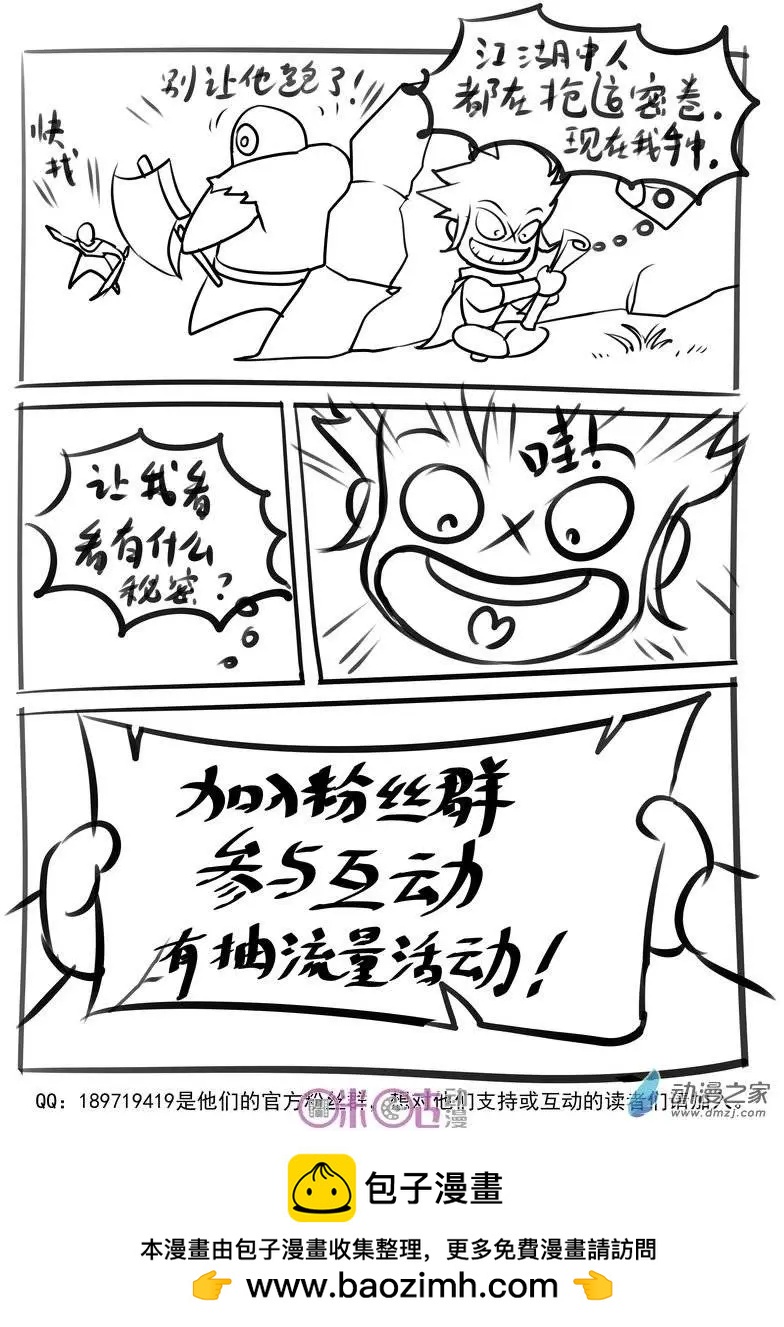 江湖中人
都在抢这密卷.
现在我手中.
别让他跑了!
快
找
让我看
看有什么
秘密?
哇!
加入粉丝群
参与互动
有抽流量活动!
QQ: 189719419是他们的官方粉丝群, 想对他们支持或互动的读者们请加入。
咪咕
动漫
动漫之家
www.dmzj.com
包子漫畫
本漫畫由包子漫畫收集整理, 更多免費漫畫請訪問
👉 www.baozimh.com 👈